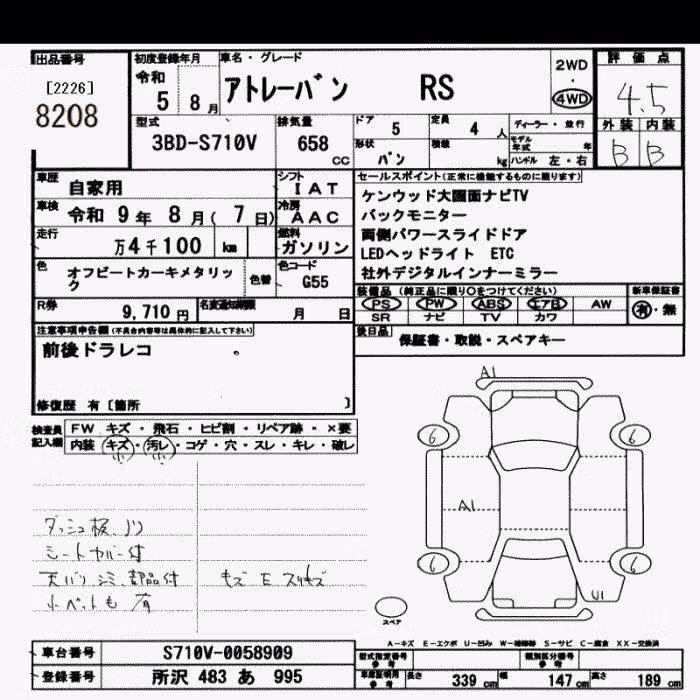 出品番号
[2226]
8208
初度登録年月
令和
5 8月
車名・グレード
アトレーバン RS
2WD
・
4WD
評価点
4.5
外装 内装
B B
型式
3BD-S710V
排気量
658
cc
ドア
5
定員
4 人
ディーラー・並行
形状
バン
積載
kg
モデル年式 年
ハンドル 左・右
車歴
自家用
シフト
IAT
車検
令和 9年 8月( 7日)
冷房
AAC
走行
万4千100 km
燃料
ガソリン
色
オフビートカーキメタリック
色替
色コード
G55
R券
9,710円
名変通知期限
月 日
セールスポイント(正常に機能するものに限ります)
ケンウッド大画面ナビTV
バックモニター
両側パワースライドドア
LEDヘッドライト ETC
社外デジタルインナーミラー
装備品(純正品に限り○をつけてください)
PS PW ABS エアB AW
SR ナビ TV カワ
新車保証書
有・無
後日品
保証書・取説・スペアキー
注意事項申告欄(不具合内容等は具体的に記入して下さい)
前後ドラレコ
修復歴 有〔箇所 〕
検査員記入欄
FW キズ・飛石・ヒビ割・リペア跡・×要
内装 キズ・汚レ・コゲ・穴・スレ・キレ・破レ
小 小
ダッシュ板ノリ
シートカバー付
天バリシミ 部品付
キズ E スリキズ
A1
6
6
A1
6
6
U1
スペア
A-キズ E-エクボ U-凹み W-補修跡 S-サビ C-腐食 XX-交換済
車台番号
S710V-0058909
登録番号
所沢 483 あ 995
型式指定番号
参考
類別区分番号
参考
車庫証明用
参考
長さ 339 cm
幅 147 cm
高さ 189 cm